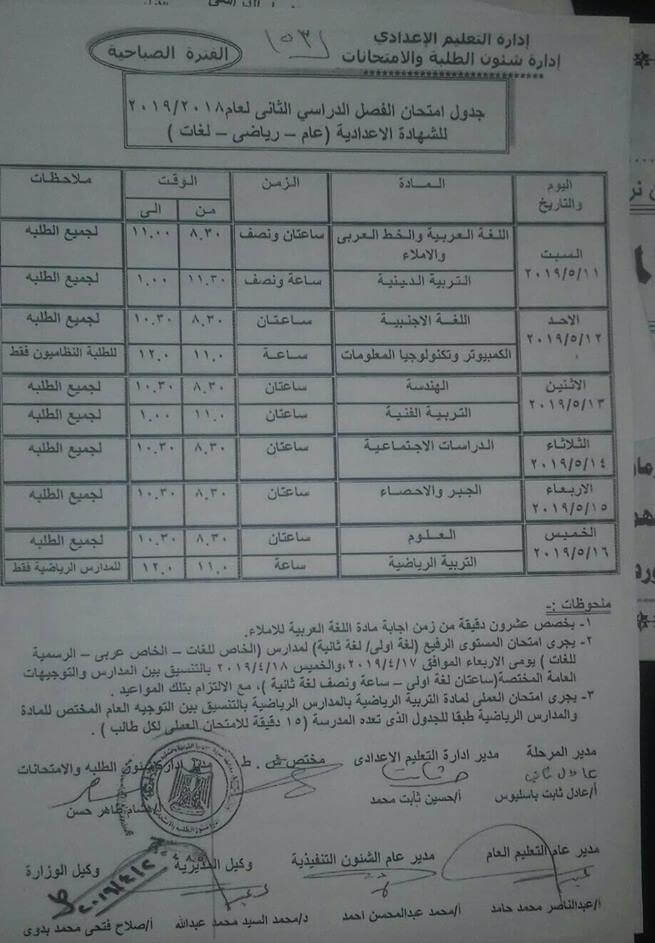 إدارة التعليم الإعدادي
إدارة شئون الطلبة والامتحانات
الفترة الصباحية
جدول امتحان الفصل الدراسي الثانى لعام ٢٠١٩/٢٠١٨
للشهادة الاعدادية (عام – رياضى – لغات )
اليوم والتاريخ المـــادة الزمن الوقت ملاحظات
من الى
السبت ٢٠١٩/٥/١١ اللغة العربية والخط العربى والاملاء ساعتان ونصف ٨.٣٠ ١١.٠٠ لجميع الطلبه
التربية الدينية ساعة ونصف ١١.٣٠ ١.٠٠ لجميع الطلبه
الاحد ٢٠١٩/٥/١٢ اللغة الاجنبية ساعتان ٨.٣٠ ١٠.٣٠ لجميع الطلبه
الكمبيوتر وتكنولوجيا المعلومات ساعة ١١.٠ ١٢.٠ للطلبة النظاميون فقط
الاثنين ٢٠١٩/٥/١٣ الهندسة ساعتان ٨.٣٠ ١٠.٣٠ لجميع الطلبه
التربية الفنية ساعتان ١١.٠ ١.٠٠ لجميع الطلبه
الثلاثاء ٢٠١٩/٥/١٤ الدراسات الاجتماعية ساعتان ٨.٣٠ ١٠.٣٠ لجميع الطلبه
الاربعاء ٢٠١٩/٥/١٥ الجبر والاحصاء ساعتان ٨.٣٠ ١٠.٣٠ لجميع الطلبه
الخميس ٢٠١٩/٥/١٦ العلوم ساعتان ٨.٣٠ ١٠.٣٠ لجميع الطلبه
التربية الرياضية ساعة ١١.٠ ١٢.٠ للمدارس الرياضية فقط
ملحوظات :-
١- يخصص عشرون دقيقة من زمن اجابة مادة اللغة العربية للاملاء.
٢- يجرى امتحان المستوى الرفيع (لغة اولى/ لغة ثانية) لمدارس (الخاص للغات – الخاص عربى – الرسمية
للغات ) يومى الاربعاء الموافق ٢٠١٩/٤/١٧ ،والخميس ٢٠١٩/٤/١٨ بالتنسيق بين المدارس والتوجيهات
العامة المختصة(ساعتان لغة اولى – ساعة ونصف لغة ثانية )، مع الالتزام بتلك المواعيد .
٣- يجرى امتحان العملى لمادة التربية الرياضية بالمدارس الرياضية بالتنسيق بين التوجيه العام المختص للمادة
والمدارس الرياضية طبقا للجدول الذى تعده المدرسة (١٥ دقيقة للامتحان العملى لكل طالب ) .
مدير المرحلة مدير ادارة التعليم الاعدادى مختص ش . ط مدير ادارة شئون الطلبه والامتحانات
أ/عادل ثابت باسليوس أ/حسين ثابت محمد أ/هشام طاهر حسن
مدير عام التعليم العام مدير عام الشئون التنفيذية وكيل المديرية وكيل الوزارة
أ/عبدالناصر محمد حامد أ/محمد عبدالمحسن احمد د/محمد السيد محمد عبدالله أ/صلاح فتحى محمد بدوى